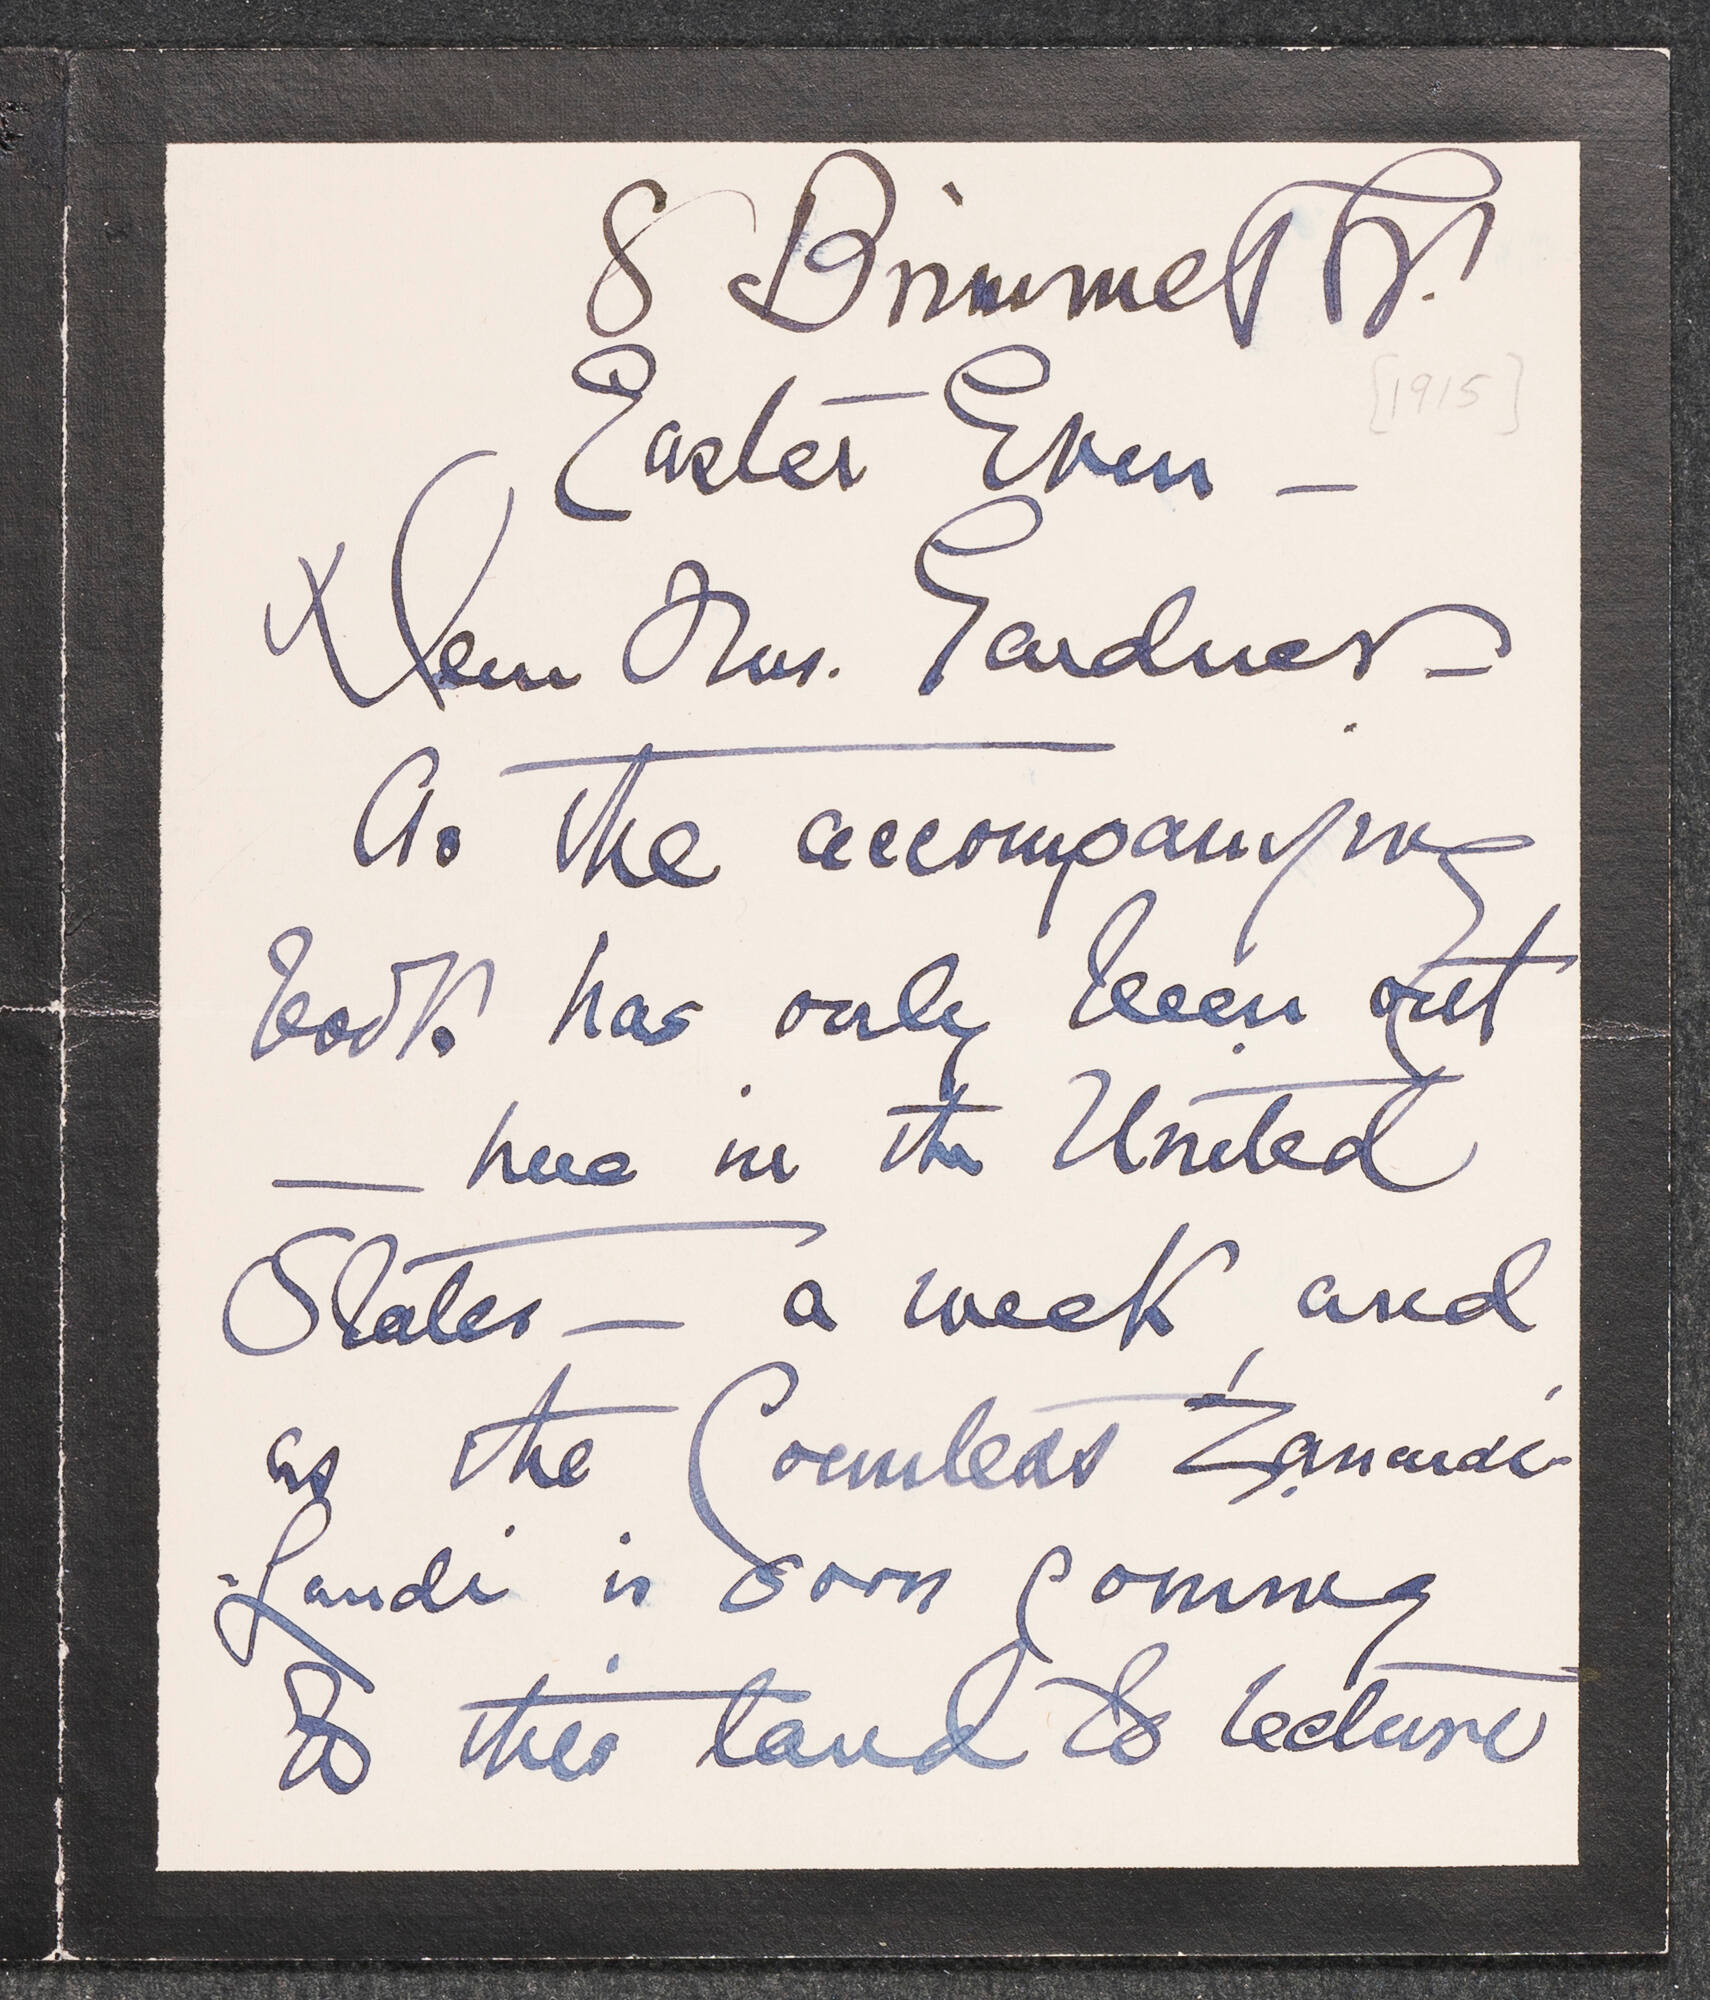 8 Brimmer St.
Easter Even —
[1915]
Dear Mrs. Gardner —
As the accompanying
book has only been out
— here in the United
States — a week, and
as the Countess Zanardi-
-Landi is soon coming
to this land to lecture